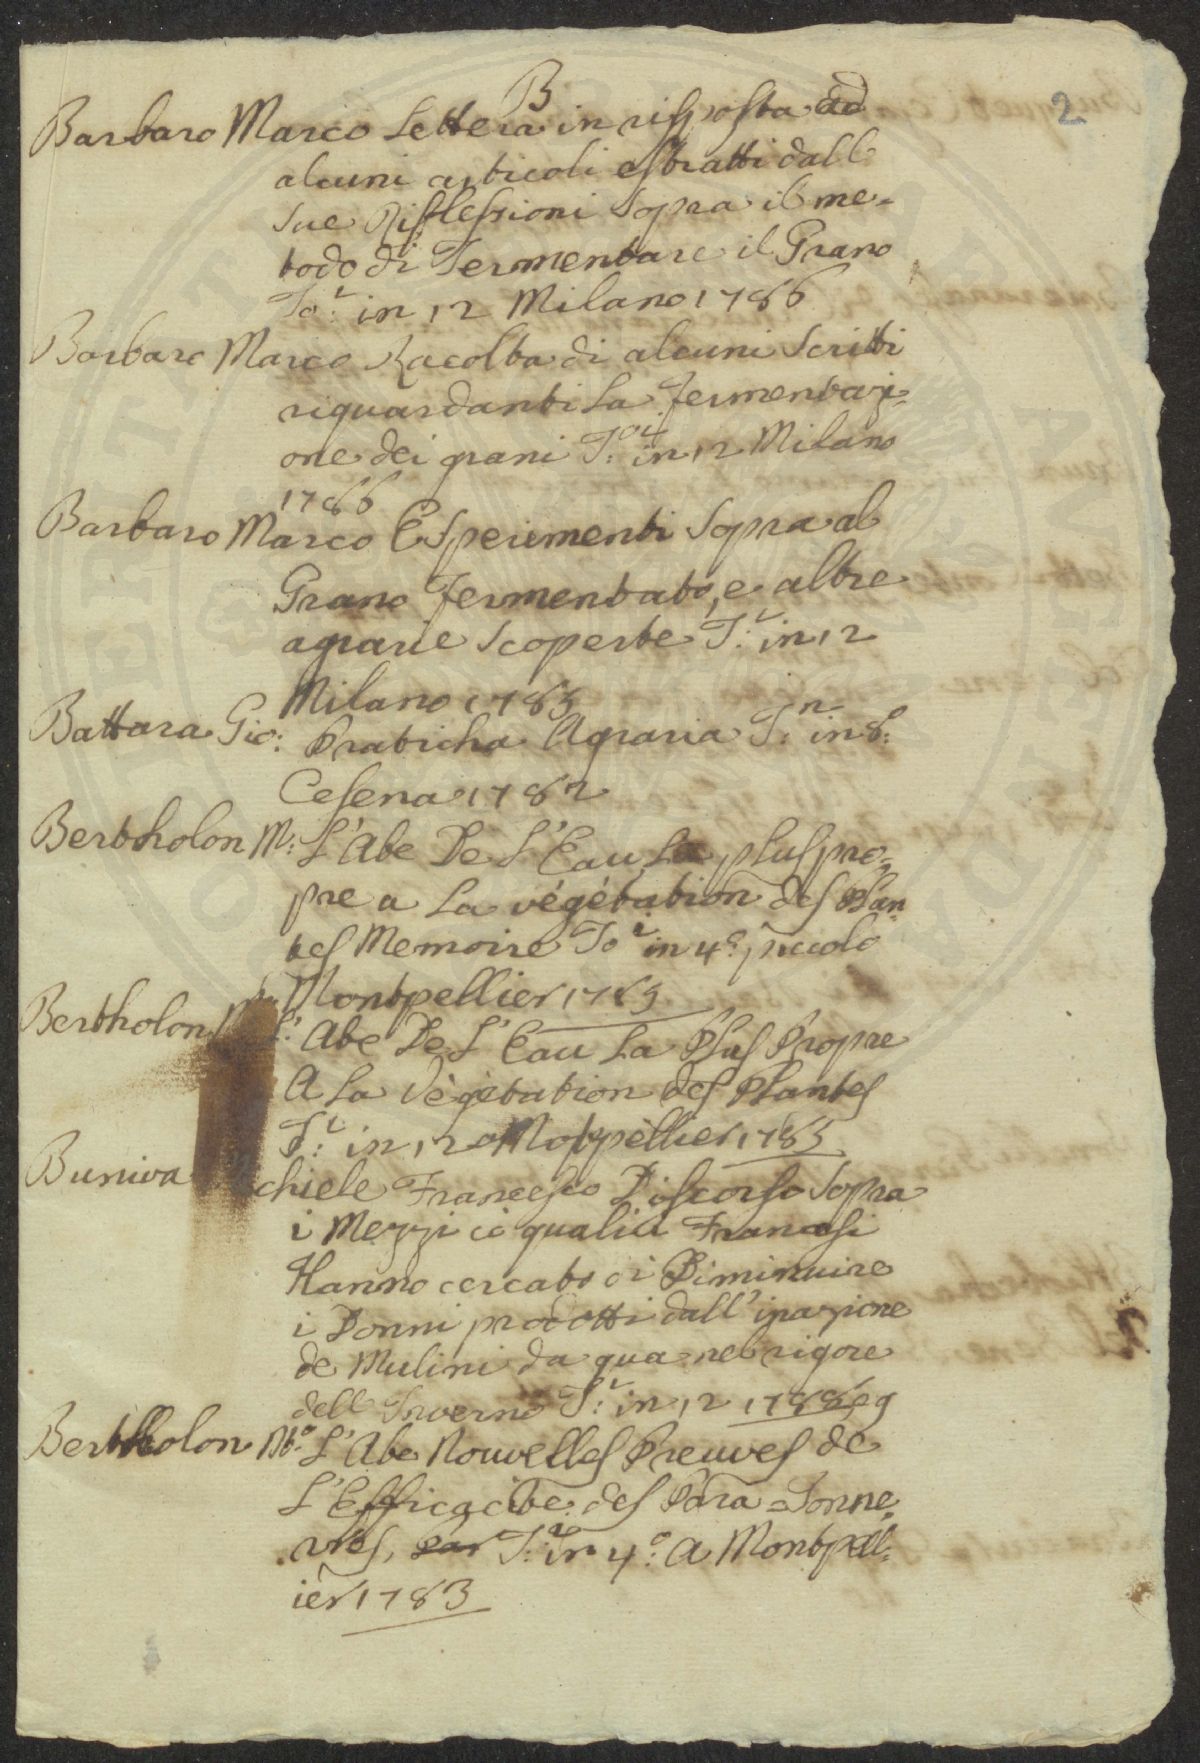 B
2
Barbaro Marco Lettera in risposta ad
alcuni articoli estratti dall
sue Riflessioni sopra il me-
todo di Fermentare il Grano
To: 1 in 12 Milano 1786
Barbaro Marco Racolta di alcuni Scritti
riguardanti La fermentazi-
one dei grani T: in 12 Milano
1786
Barbaro Marco Esperimenti Sopra al
Grano fermentato, e altre
agrarie Scoperte T: 1 in 12
Milano 1785
Battara Gio: Praticha Agraria T: in 8:
Cesena 1782
Bertholon M: L'Abe De L'Eau La plus pro-
pre a La végétation des Plan
tes Memoire To 1 in 4: piccolo
Montpellier 1785
Bertholon L'Abe De L'Eau La Plus Propre
A La Végétation des Plantes
T: 1 in 12 a Motpellier 1785
Buniva chiele Francesco Discorso Sopra
i Mezzi cò quali i Francesi
Hanno cercato di Diminuire
i Danni prodotti dall'inazione
de Mulini da qua nel rigore
dell Inverno T: 1 in 12 1788, e 9
Bertholon L'Abe Nouvelles Preuves de
L'Efficacité des Para=Tonne.
res, T: in 4:o A Montpell-
ièr 1783